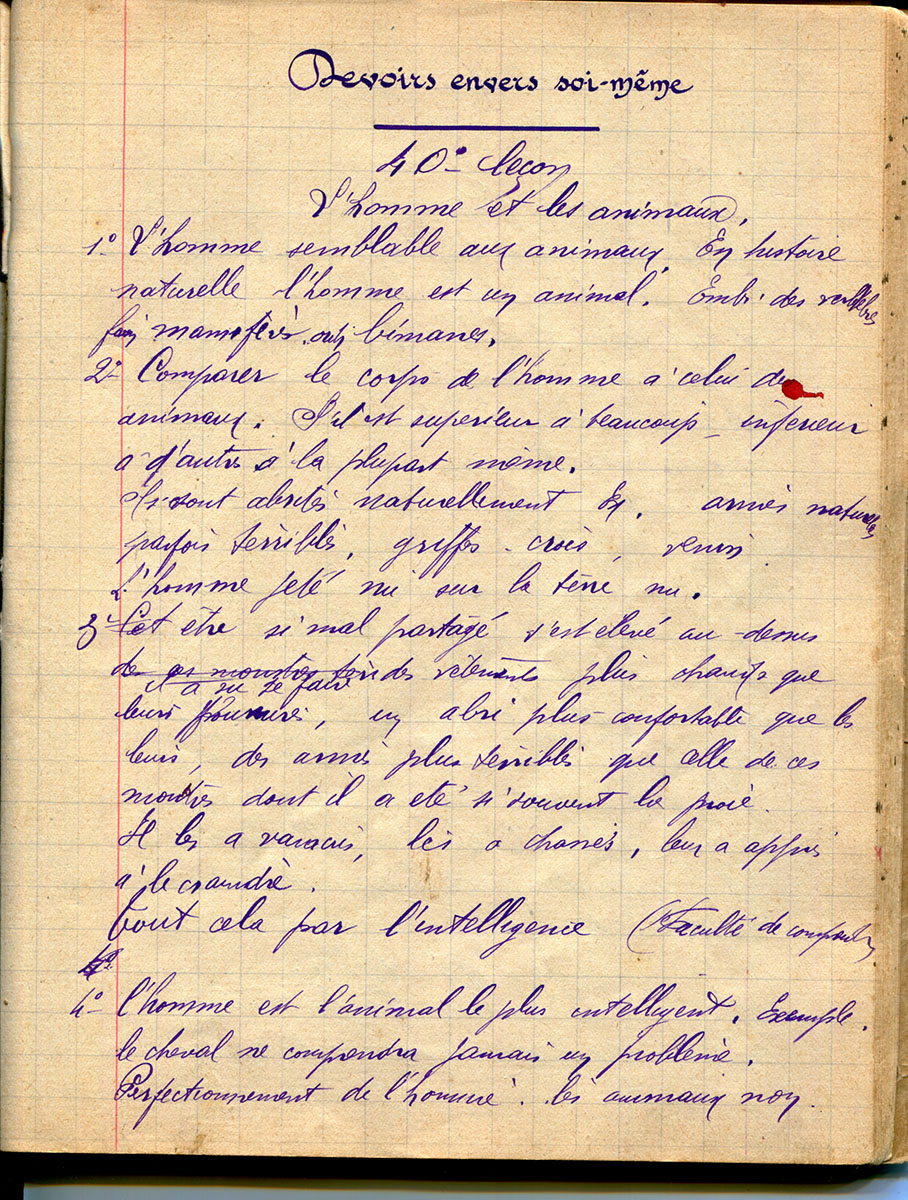 Devoirs envers soi-même
40e leçon
L'homme et les animaux.
1o L'homme semblable aux animaux. En histoire
naturelle l'homme est un animal. Emb. des vertébrés
mammifères bimanes.
2o Comparer le corps de l'homme à celui des
animaux. S'il est supérieur à beaucoup – inférieur
à d'autres à la plupart même.
Ils sont abrités naturellement Ex. armes naturelles
parfois terribles, griffes crocs, venin
L'homme jeté nu sur la terre nu.
3o Cet être si mal partagé s'est élevé au-dessus
de ces monstres des vêtements plus chauds que
il a su se faire
leurs fourrures, un abri plus confortable que les
leurs, des armes plus terribles que celle de ces
monstres dont il a été si souvent la proie.
Il les a vaincus, les a chassés, leur a appris
à le craindre.
Tout cela par l'intelligence (Faculté de comprendre
4o
4o l'homme est l'animal le plus intelligent. Exemple.
le cheval ne comprendra jamais un problème.
Perfectionnement de l'homme. les animaux non.